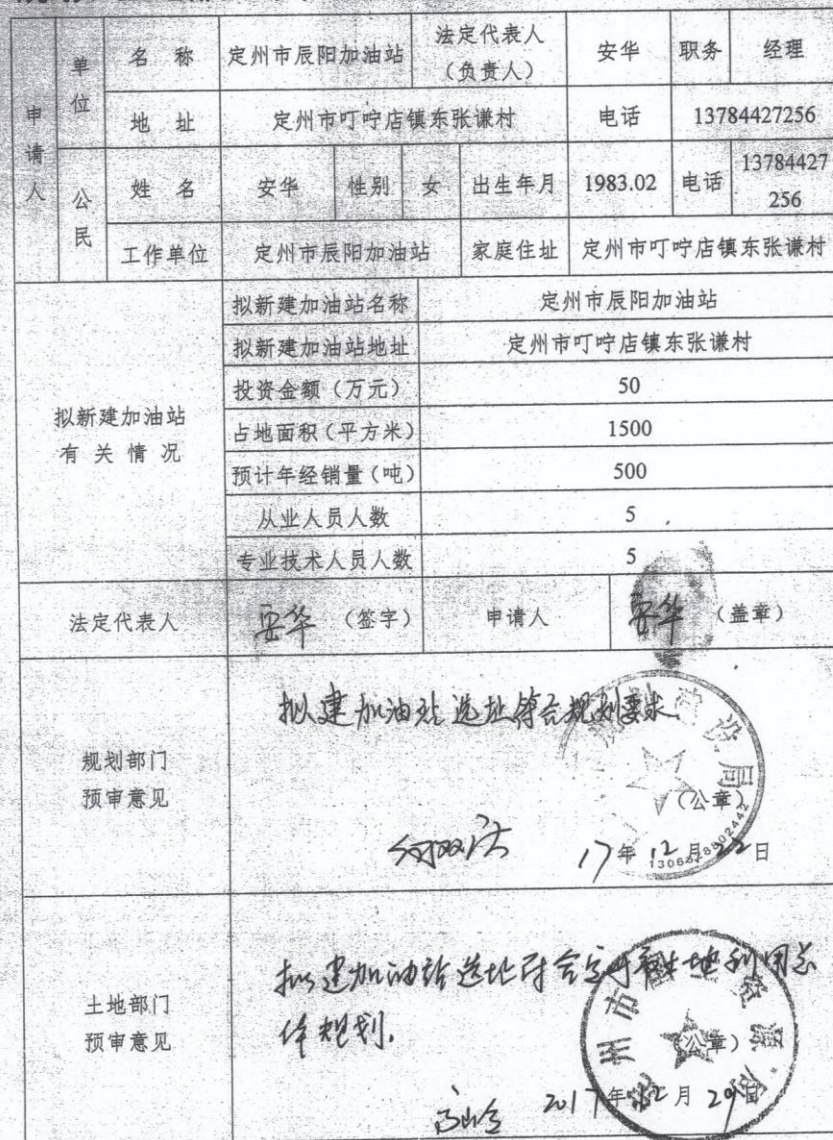 申请人
单位
名 称 定州市辰阳加油站 法定代表人（负责人） 安华 职务 经理
地 址 定州市叮咛店镇东张谦村 电话 13784427256
公民
姓 名 安华 性别 女 出生年月 1983.02 电话 13784427256
工作单位 定州市辰阳加油站 家庭住址 定州市叮咛店镇东张谦村
拟新建加油站
有 关 情 况
拟新建加油站名称 定州市辰阳加油站
拟新建加油站地址 定州市叮咛店镇东张谦村
投资金额（万元） 50
占地面积（平方米） 1500
预计年经销量（吨） 500
从业人员人数 5
专业技术人员人数 5
法定代表人 安华 （签字） 申请人 安华 （盖章）
规划部门
预审意见
拟建加油站选址符合规划要求.
（公章）
17年12月22日
土地部门
预审意见
拟建加油站选址符合定州市土地利用总
体规划.
（公章）
2017年12月29日